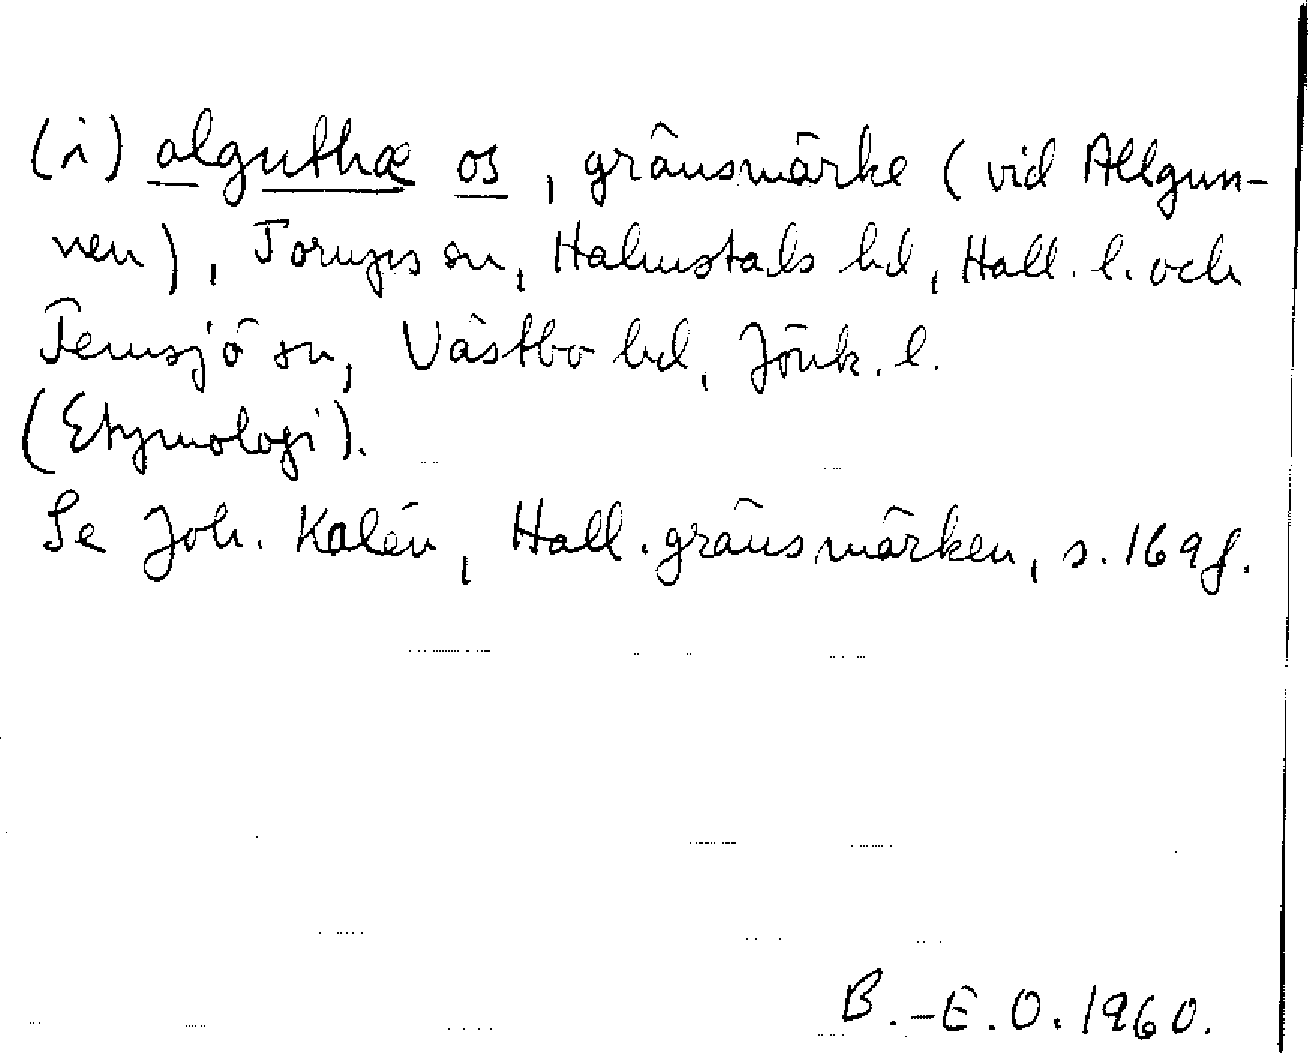 (i) alguthæ os, gränsmärke (vid Allgun-
nen), Torups sn, Halmstads hd, Hall. l. och
Femsjö sn, Västbo hd, Jönk. l.
(Etymologi).
Se Joh. Kalén, Hall. gränsmärken, s. 169f.
B.-E.O. 1960.